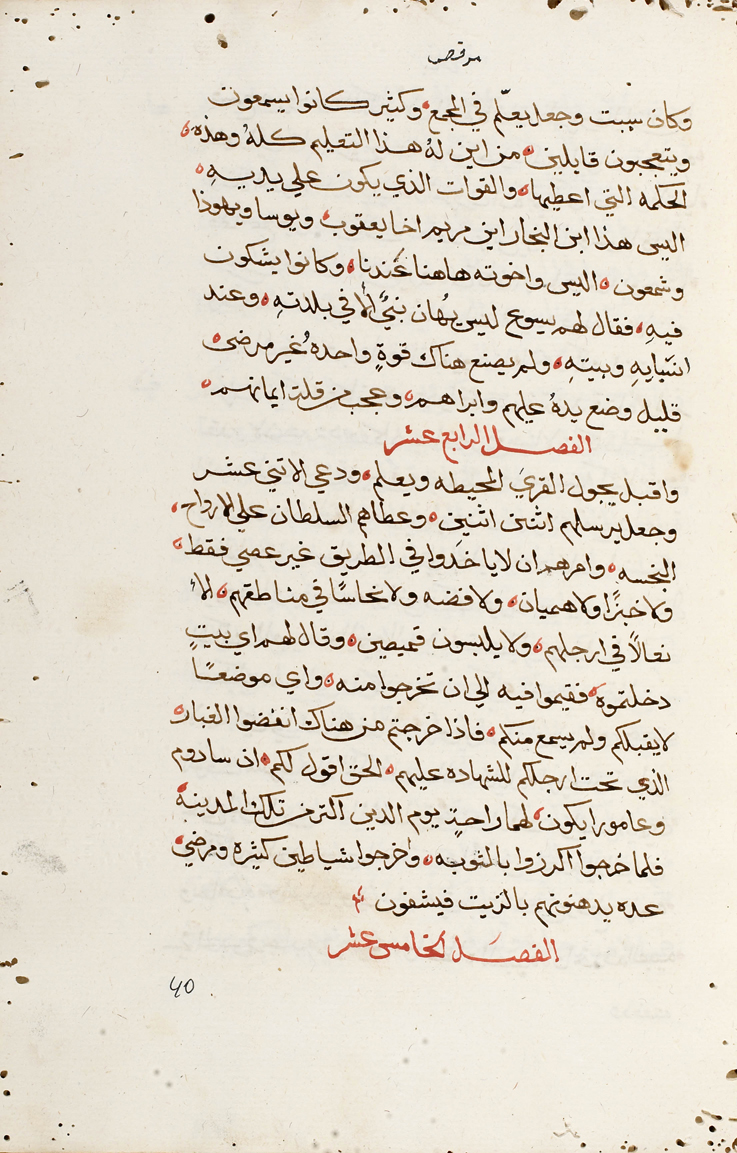 مرقص
وكان سبت وجعل يعلّم في المجمع وكثير كانوا يسمعون
ويتعجبون قايلين من اين لهُ هذا التعليم كلهُ وهذهِ
الحكمه التي اعطيها والقوات الذي يكون علي يديهِ
اليس هذا ابن النجار ابن مريم اخا يعقوب ويوسا ويهوذا
وشمعون اليس واخوته هاهنا عندنا وكانوا يشكون
فيهِ فقال لهم يسوع ليس يُهان نبيٌّ الا في بلدتهِ وعند
انسبايهِ وبيتهِ ولم يصنع هناك قوةٍ واحدهُ غير مرضى
قليل وضع يدهُ عليهم وابراهم وعجب من قلت ايمانهم
الفصل الرابع عشر
واقبل يجول القري المحيطه ويعلم ودعي الاتني عشر
وجعل يرسلهم اثنين اثنين وعطاهم السلطان علي الارواح
النجسه وامرهم ان لا ياخدوا في الطريق غير عصي فقط
ولا خبزًا ولا هميان ولا فضه ولا نحاسًا في مناطقهم الا
نعالًا في ارجلهم ولا يلبسون قميصين وقال لهم اي بيتٍ
دخلتموه فقيموا فيه الي ان تخرجوا منه واي موضعًا
لا يقبلكم ولم يسمع منكم فاذا خرجتم من هناك انفضوا الغبار
الذي تحت ارجلكم للشهاده عليهم الحق اقول لكم ان سادوم
وعامورا يكون لهما راحةٍ يوم الدين اكتر من تلك المدينة
فلما خرجوا اكرزوا بالتوبه واخرجوا شياطين كثيره ومرضي
عده يدهنونهم بالزيت فيشفون
الفصل الخامس عشر
40